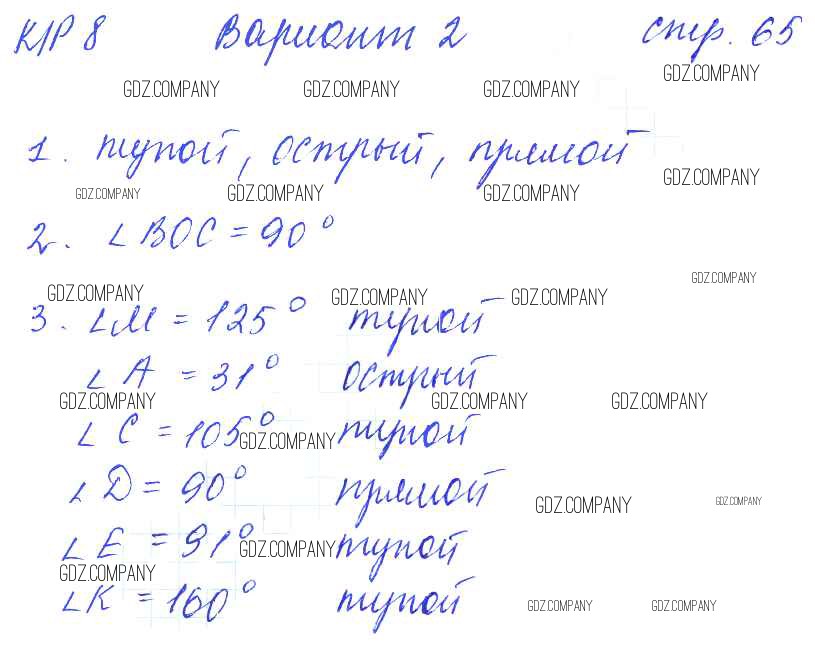 К/Р 8 Вариант 2 стр. 65
GDZ.COMPANY
GDZ.COMPANY GDZ.COMPANY GDZ.COMPANY
1. тупой, острый, прямой
GDZ.COMPANY
GDZ.COMPANY GDZ.COMPANY GDZ.COMPANY
2. ∠BOC = 90°
GDZ.COMPANY
GDZ.COMPANY GDZ.COMPANY GDZ.COMPANY
3. ∠M = 125° тупой
∠A = 31° острый
GDZ.COMPANY GDZ.COMPANY GDZ.COMPANY
∠C = 105° тупой
GDZ.COMPANY
∠D = 90° прямой
GDZ.COMPANY GDZ.COMPANY
∠E = 91° тупой
GDZ.COMPANY
GDZ.COMPANY
∠K = 160° тупой
GDZ.COMPANY GDZ.COMPANY